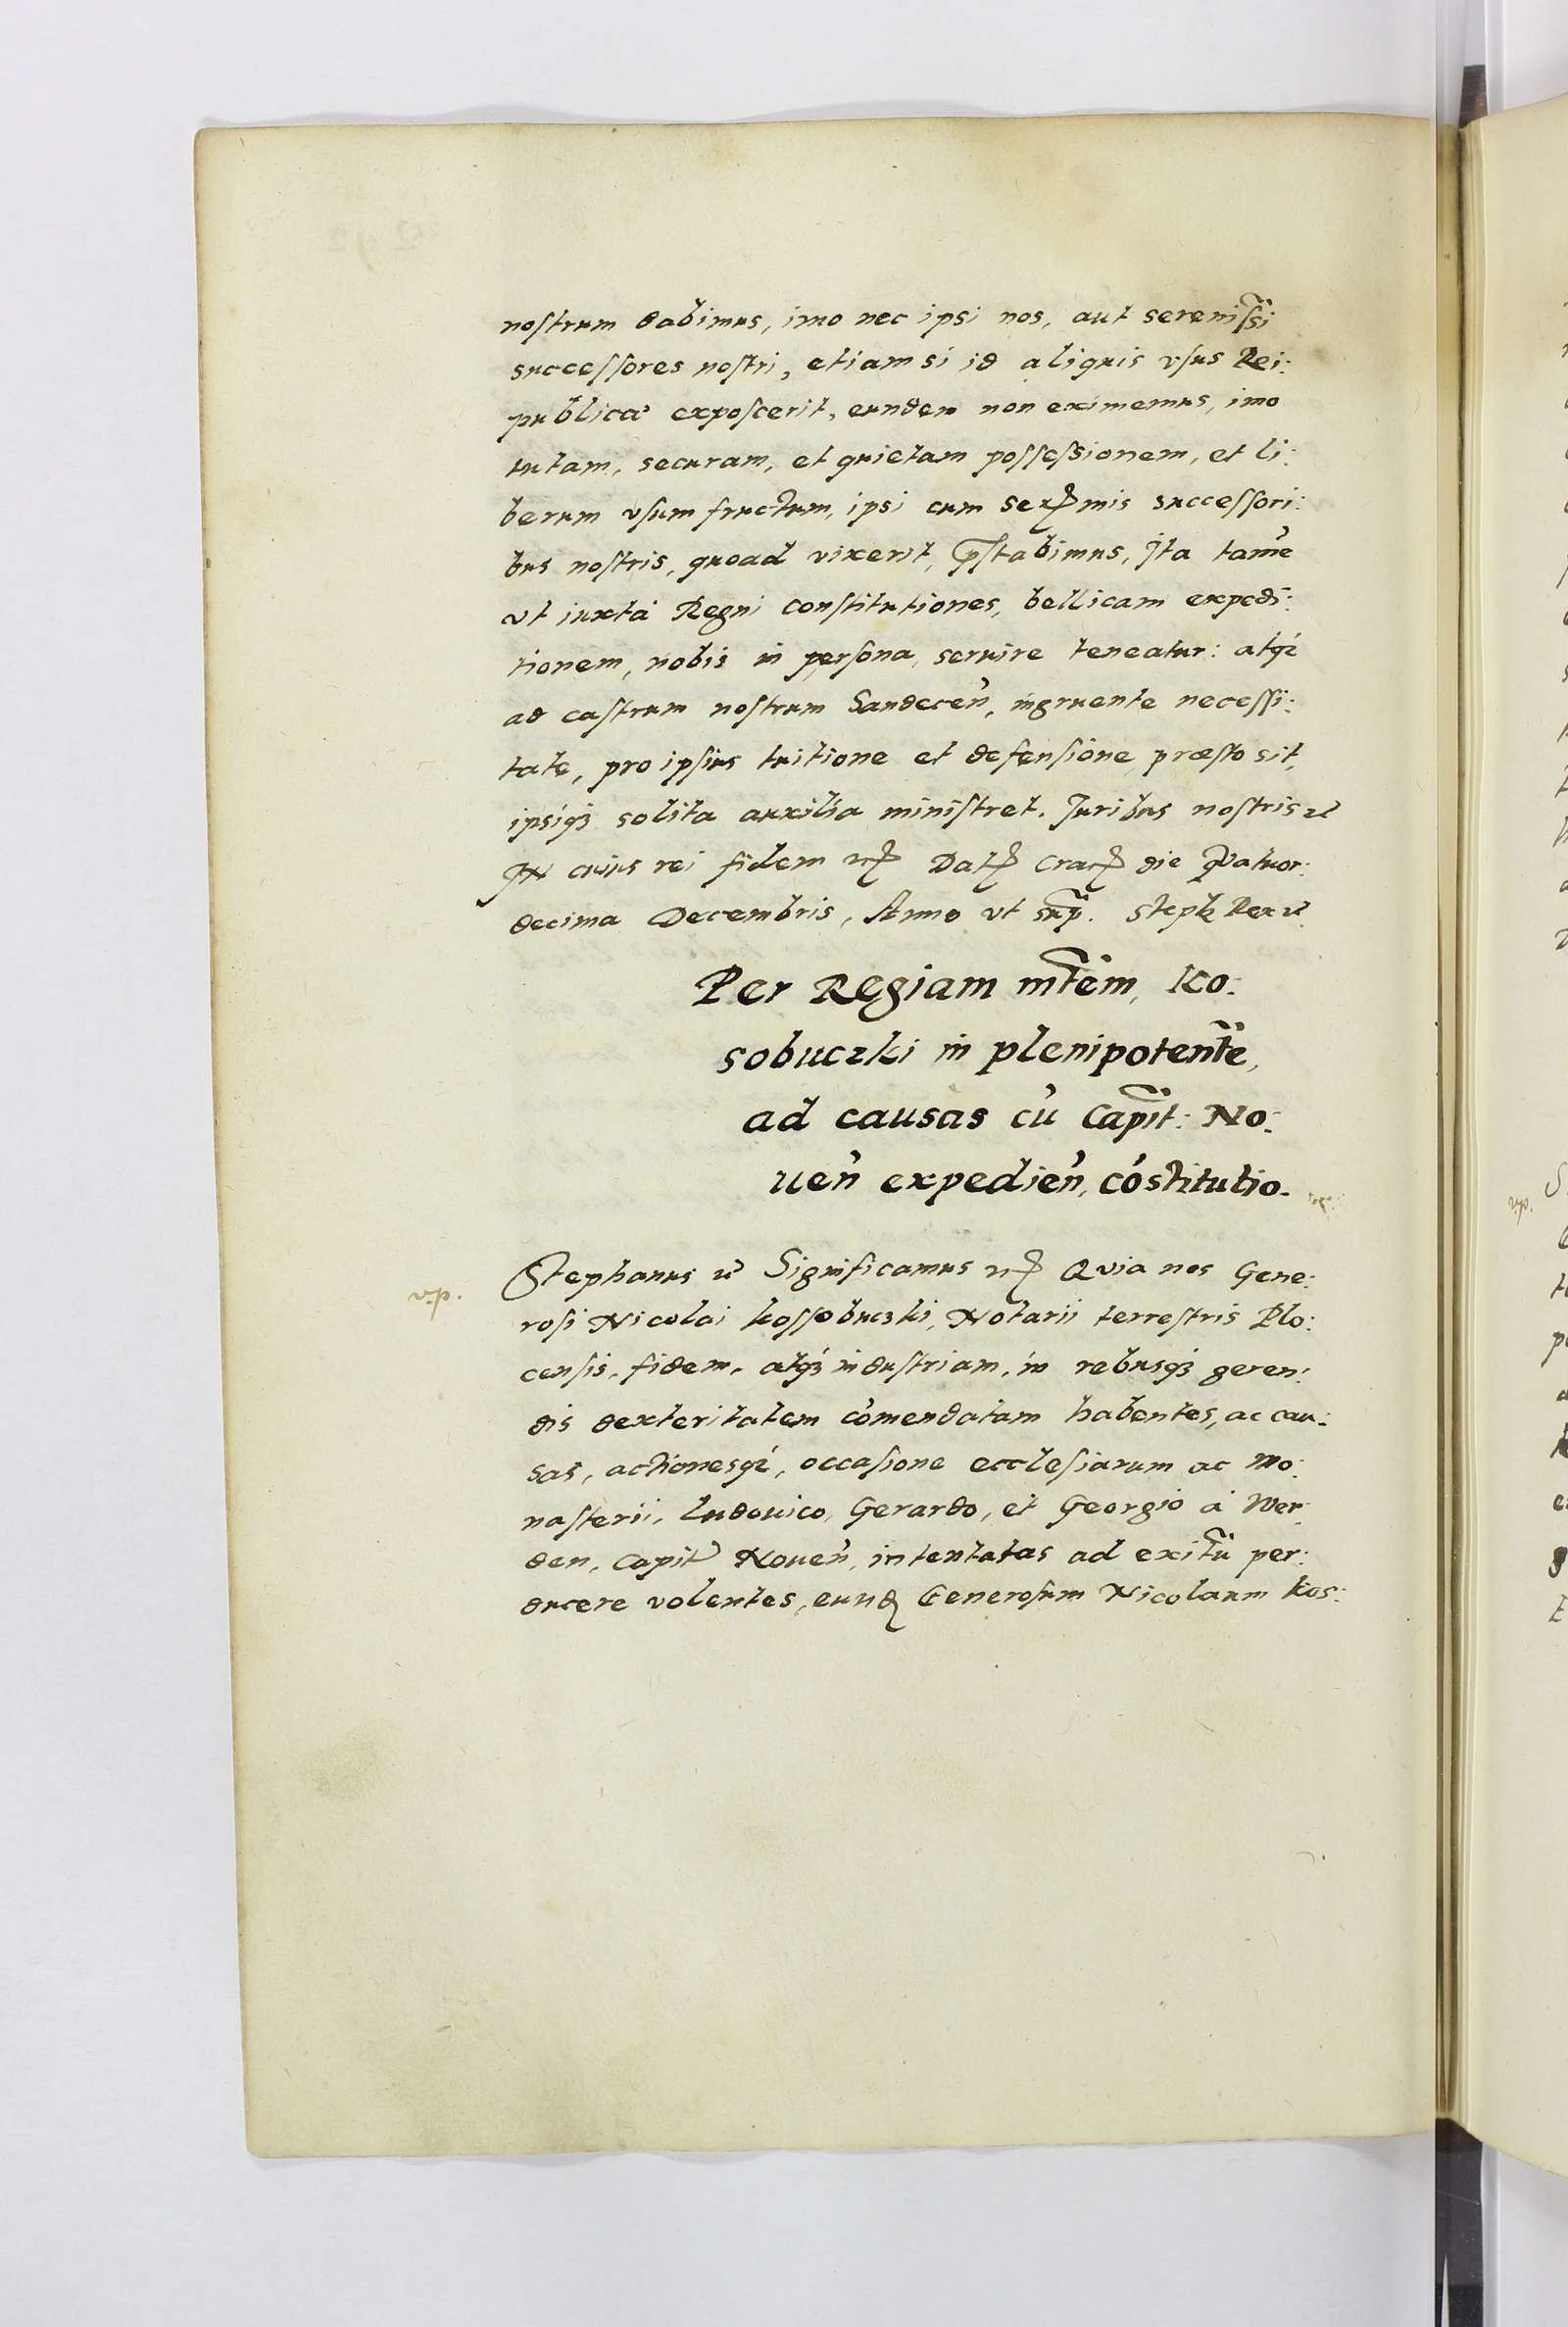 nostrum dabimus, imo nec ipsi nos, aut serenissi
successores nostri, etiam si id aliquis vsus Rei:
publicæ exposcerit, eundem non eximemus, imo
tutam, securam, et quietam possessionem, et li:
berum vsumfructum, ipsi cum Sermis successori:
bus nostris, quoad vixerit, pstabimus, Ita tamē
vt iuxta Regni constitutiones, bellicam expedi:
tionem, nobis in persona, seruire teneatur: atqꝫ
ad castrum nostrum Sandecen̄, ingruente necessi:
tate, pro ipsius tuitione et defensione præsto sit,
ipsiqꝫ solita auxilia ministret. Iuribus nostris ꝛc
In cuius rei fidem ꝛc Dat Crac die Quatuor:
decima Decembris, Anno vt sup. Steph Rex ꝛc
Per Regiam mtem, Ko:
sobuczki in plenipotente,
ad causas cū Capit: No:
uen̄ expedien̄, cōstitutio.
Stephanus ꝛc Significamus ꝛc Quia nos Gene:
v.p.
rosi Nicolai Kossobuczki, Notarii terrestris Plo:
censis, fidem, atqꝫ industriam, in rebusqꝫ geren:
dis dexteritatem cōmendatam habentes, ac cau:
sas, actionesqꝫ, occasione ecclesiarum ac Mo:
nasterii, Ludouico, Gerardo, et Georgio à Wer
den, Capit Nouen̄, intentatas ad exitū per:
ducere volentes, eund Generosum Nicolaum Kos: